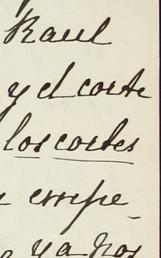 Raul
y el corte
los cortes
empe_
y a nos